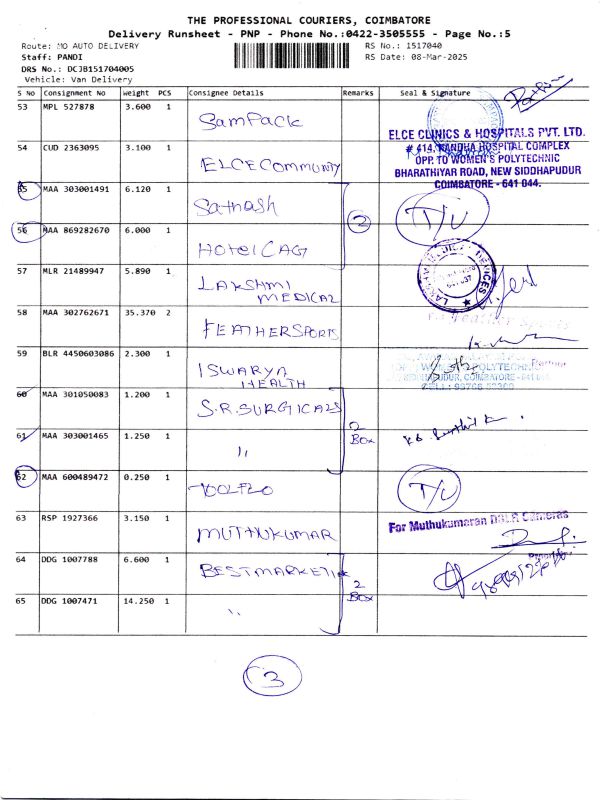 THE PROFESSIONAL COURIERS, COIMBATORE
Delivery Runsheet - PNP - Phone No.:0422-3505555 - Page No.:5
Route: MO AUTO DELIVERY
RS No.: 1517040
Staff: PANDI
RS Date: 08-Mar-2025
DRS No.: DCJB151704005
Vehicle: Van Delivery
S No Consignment No Weight PCS Consignee Details Remarks Seal & Signature
53 MPL 527878 3.600 1 Sam Pack
54 CUD 2363095 3.100 1 ELCE Community
ELCE CLINICS & HOSPITALS PVT. LTD.
# 414, KANDHA HOSPITAL COMPLEX
OPP. TO WOMEN'S POLYTECHNIC
BHARATHIYAR ROAD, NEW SIDDHAPUDUR
COIMBATORE - 641 044.
55 MAA 303001491 6.120 1 Sathash
2 T/U
56 MAA 869282670 6.000 1 HOTEL CAG
57 MLR 21489947 5.890 1 LAKSHMI MEDICAL
58 MAA 302762671 35.370 2 FEATHER SPORTS
59 BLR 4450603086 2.300 1 ISWARYA HEALTH
60 MAA 301050083 1.200 1 S.R. SURGICALS
2 Box
61 MAA 303001465 1.250 1 "
62 MAA 600489472 0.250 1 TOOLFLO T/U
63 RSP 1927366 3.150 1 MUTHUKUMAR
For Muthukumaran
64 DDG 1007788 6.600 1 BEST MARKETING
2 Box
65 DDG 1007471 14.250 1 "
3